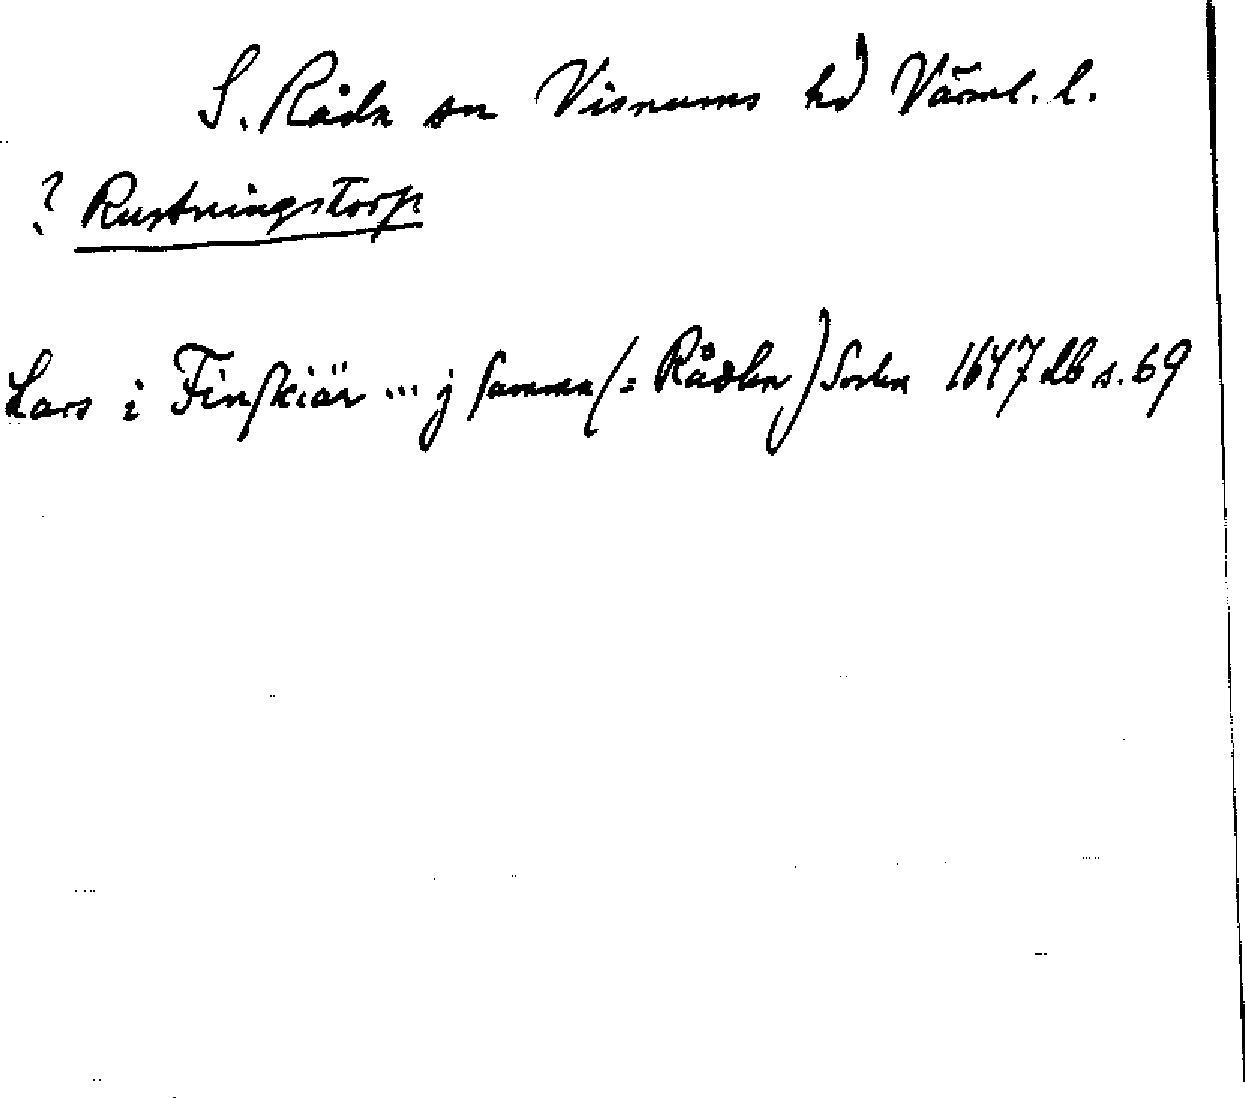 S. Råda sn Visnums hd Värml. l.
? Rustningstorp
Lars i Finskiär ... j samma (= Rådha) Sochn 1647 db s. 69